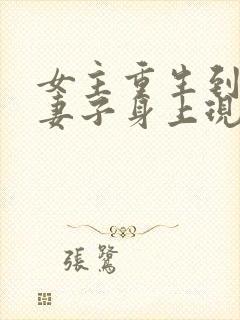 女主重生到
妻子身上現
張鷺